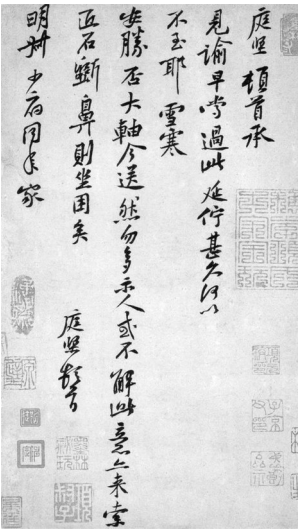 庭堅頓首承
見諭早嘗過此延佇甚久何以
不至耶雪寒
安勝否大軸今送然勿多示人或不解此意亦來索
匠石斲鼻則坐困矣
庭堅頓首
明叔少府同年家